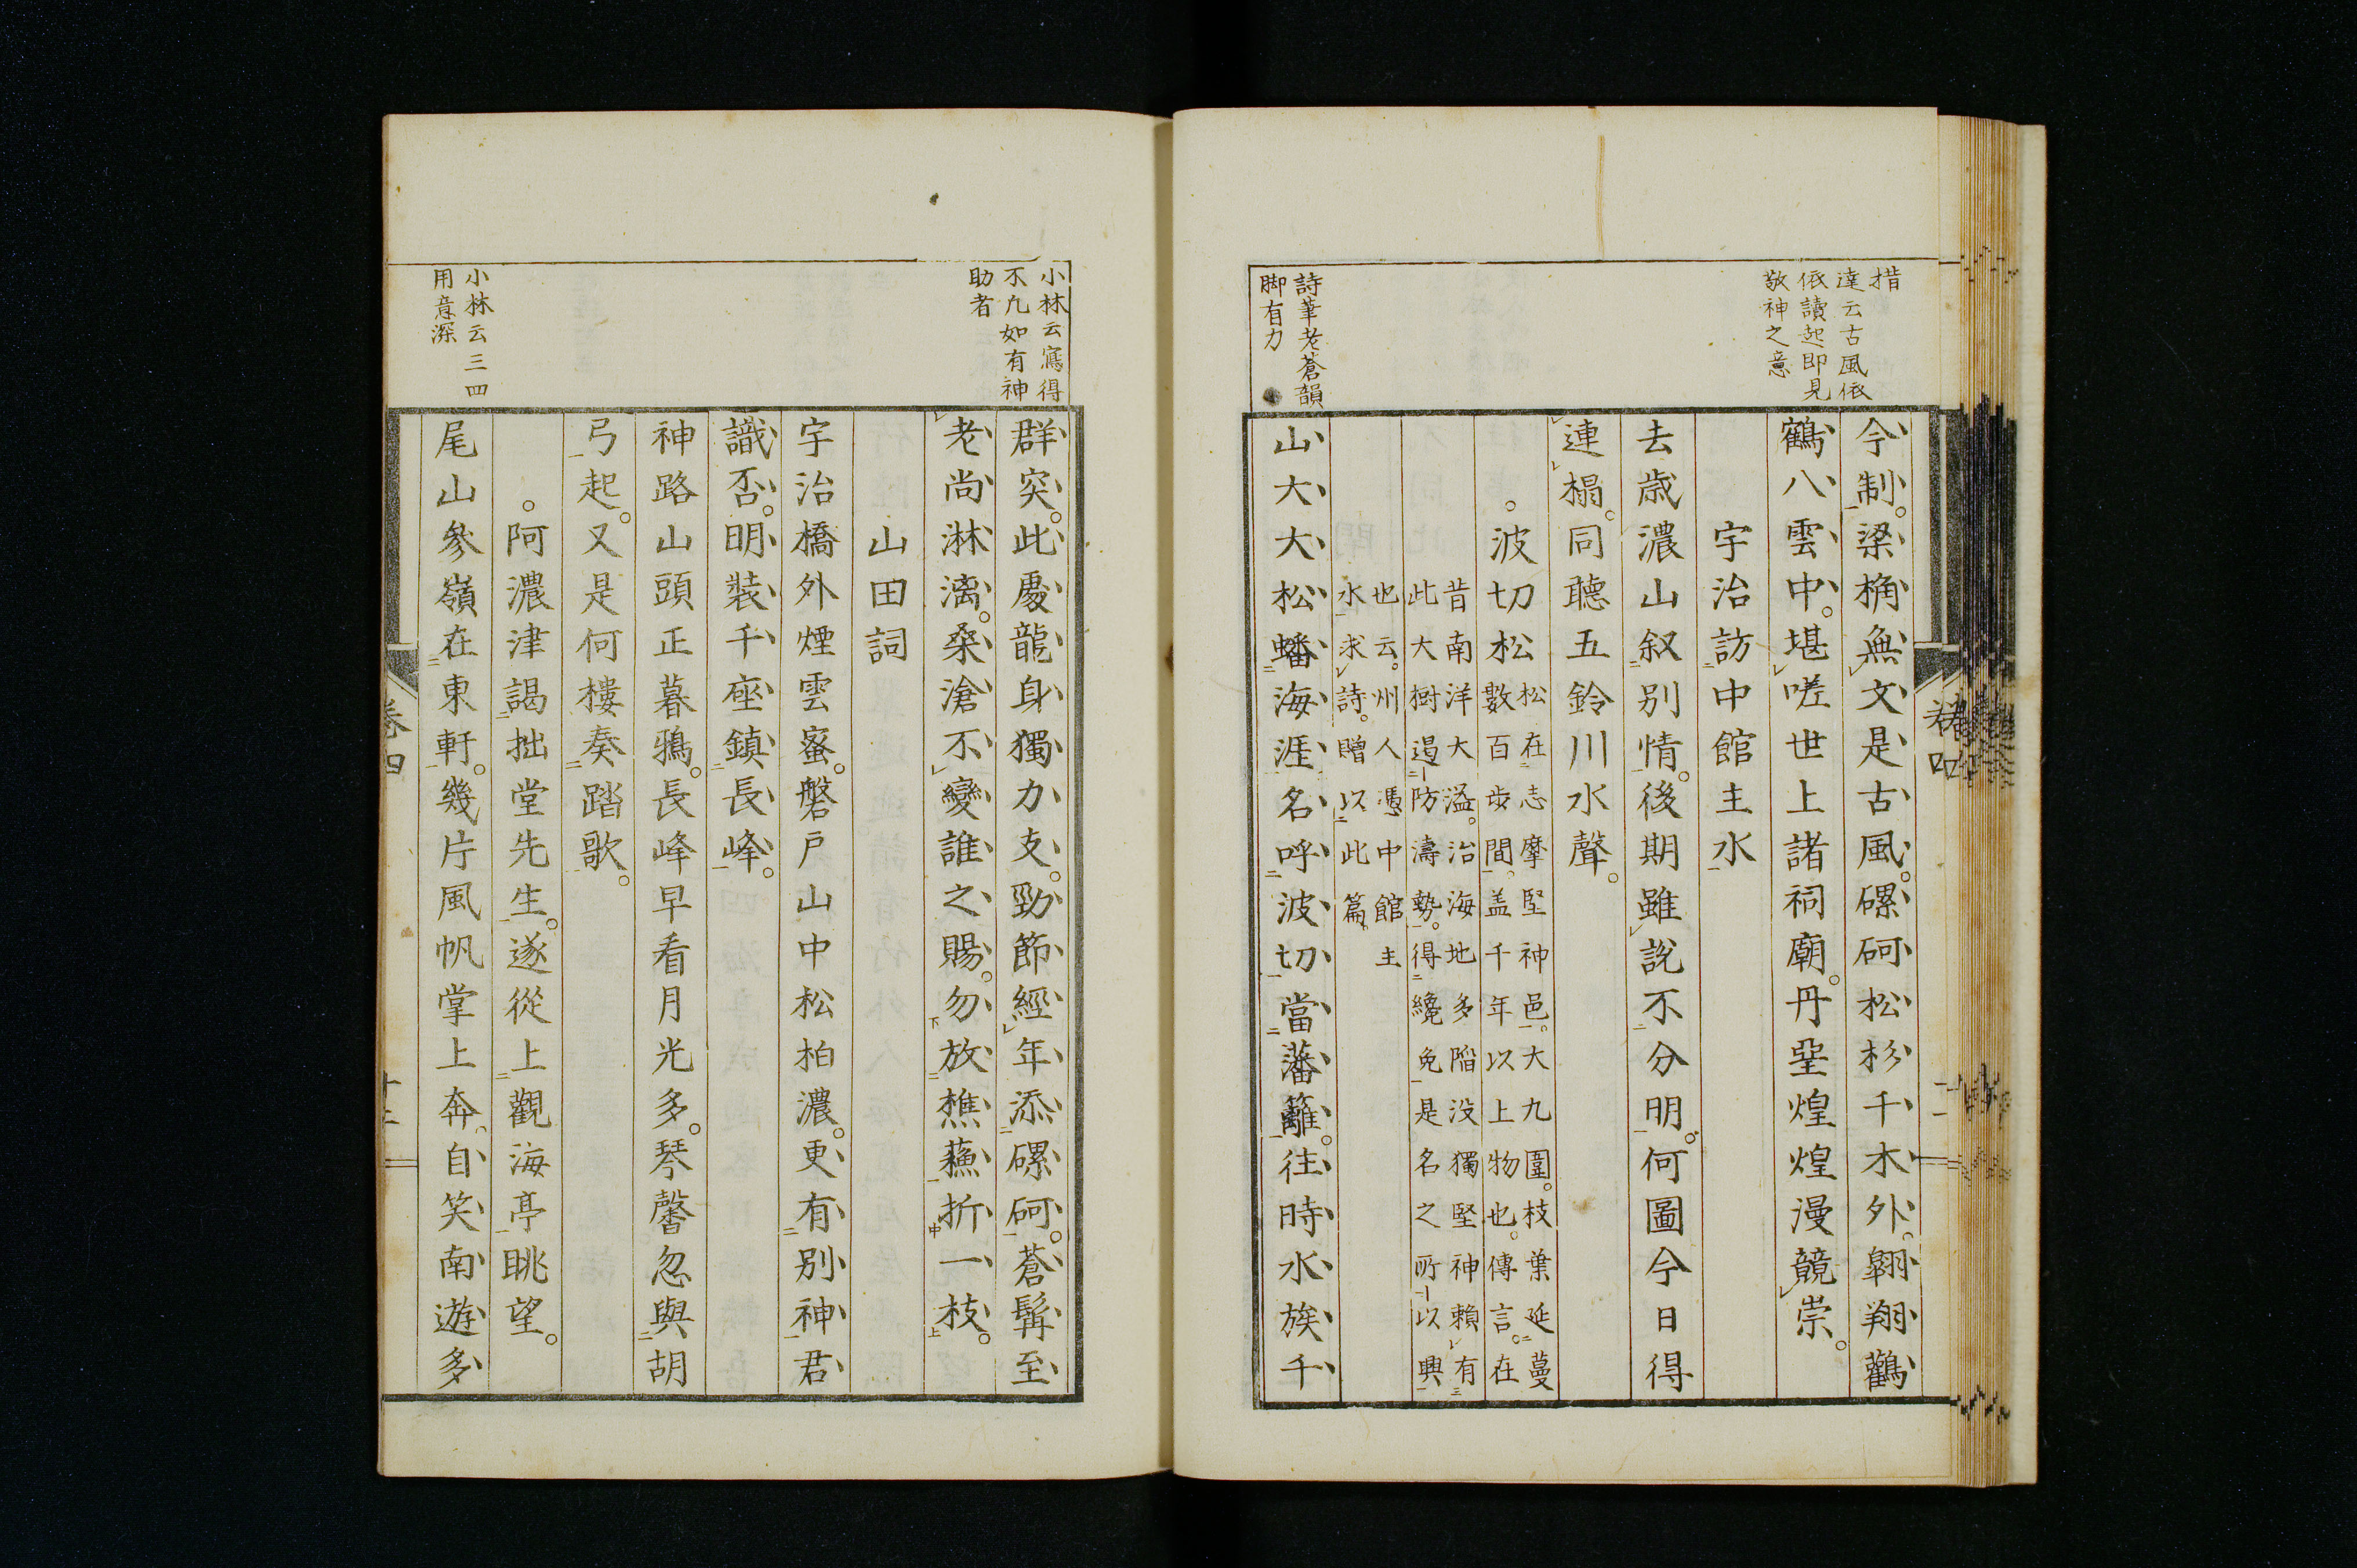 措
達云古風依
依讀起即見
敬神之意
詩筆老蒼韻
脚有力
今制。梁桷無文是古風。磥砢松杉千木外。翱翔鸛
鶴八雲中。堪嗟世上諸祠廟。丹堊煌煌漫競崇。
宇治訪中館主水
去歳濃山叙別情。後期雖說不分明。何圖今日得
連榻。同聽五鈴川水聲。
。波切松
松在志摩堅神邑。大九圍。枝葉延蔓
數百步間。盖千年以上物也。傳言。在
昔南洋大溢。沿海地多陷没獨堅神賴有
此大樹遏防濤勢。得纔免是名之所以興
也云。州人馮中館主
水求詩。贈以此篇
山大大松蟠海涯名呼波切當藩籬。往時水族千
卷四
小林云寫得
不凡如有神
助者
小林云三四
用意深
群突。此處龍身獨力支。勁節經年添磥砢。蒼髯至
老尚淋漓。桑滄不變誰之賜。勿放樵蘓折一枝。
山田詞
宇治橋外煙雲蜜。磐戸山中松柏濃。更有別神君
識否。明裝千座鎮長峰。
神路山頭正暮鴉。長峰早看月光多。琴馨忽與胡
弓起。又是何樓奏踏歌。
。阿濃津謁拙堂先生。遂從上觀海亭眺望。
尾山參嶺在東軒。幾片風帆掌上奔。自笑南遊多
卷四
十二